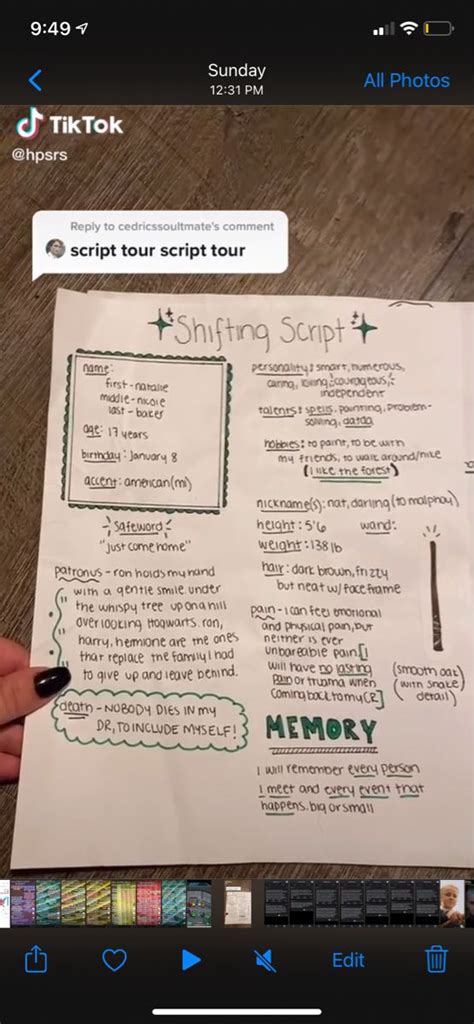 9:49
Sunday
12:31 PM
All Photos
TikTok
@hpsrs
Reply to cedricssoultmate's comment
script tour script tour
Shifting Script
name:
first-natalie
middle-nicole
last-baker
age: 17 years
birthday: January 8
accent: american(mi)
safeword
"just come home"
patronus - ron holds my hand
with a gentle smile under
the whispy tree up on a hill
overlooking hogwarts. ron,
harry, hermione are the ones
that replace the family I had
to give up and leave behind.
death - NOBODY DIES IN MY
DR, TO INCLUDE MYSELF!
personality: smart, humerous,
caring, loving, courageous,
independent
talents: spells, painting, problem-
solving,
hobbies: to paint, to be with
my friends, to walk around/hike
(I like the forest)
nickname(s): nat, darling (to malphoy)
height: 5'6 wand:
weight: 138 lb
hair: dark brown, frizzy
but neat w/ face frame
pain - I can feel emotional
and physical pain, but
neither is ever
unbareable pain [I
will have no lasting
pain or truama when
coming back to my CR]
(smooth oak)
(with snake
detail)
MEMORY
I will remember every person
I meet and every event that
happens. big or small
Edit